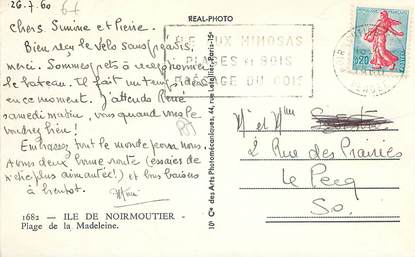 26.7.60
REAL-PHOTO
Chers Simone et Pierre.
Bien reçu le vélo sans
merci. Sommes prêts à réceptionner
le bateau. Il fait un temps idéal
en ce moment. J'attends René
samedi matin, vous quand vous le
voudrez bien!
Embrassez tout le monde pour nous.
Avons deux bonne route (essaies de
n'être plus aimantée!) et bons baisers
à bientôt.
1682 - ILE DE NOIRMOUTIER -
Plage de la Madeleine.
10 Cie des Arts Photomécaniques, 44, rue Letellier, Paris-15e
ILE AUX MIMOSAS
PLAGES ET BOIS
PLAGE DU BOIS
0,20
Mr et Mme
2 Rue des Prairies
Le Pecq
S.O.